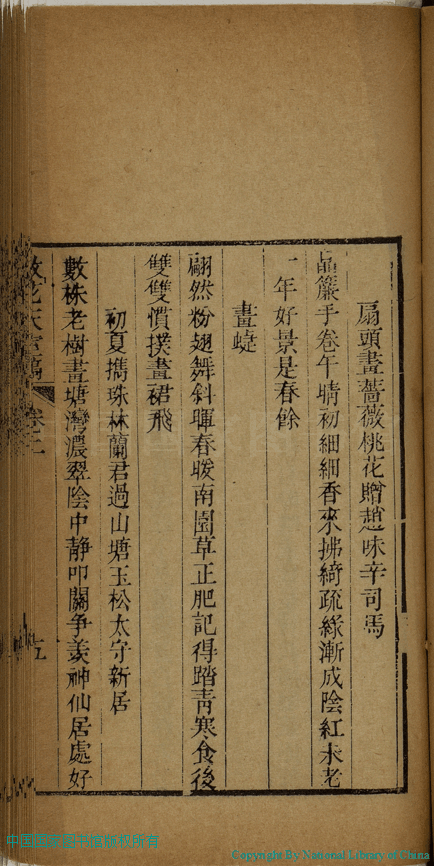 扇頭畫薔薇桃花贈趙味辛司馬
晶簾手卷午晴初細細香來拂綺疏綠漸成陰紅未老
一年好景是春餘
畫蜨
翩然粉翅舞斜暉春暖南園草正肥記得踏靑寒食後
雙雙慣撲畫裙飛
初夏擕珠林蘭君過山塘玉松太守新居
數株老樹畫塘灣濃翠陰中静叩關争羡神仙居處好
花天
五
中国国家图书馆
所有
Copyright By National Library of China